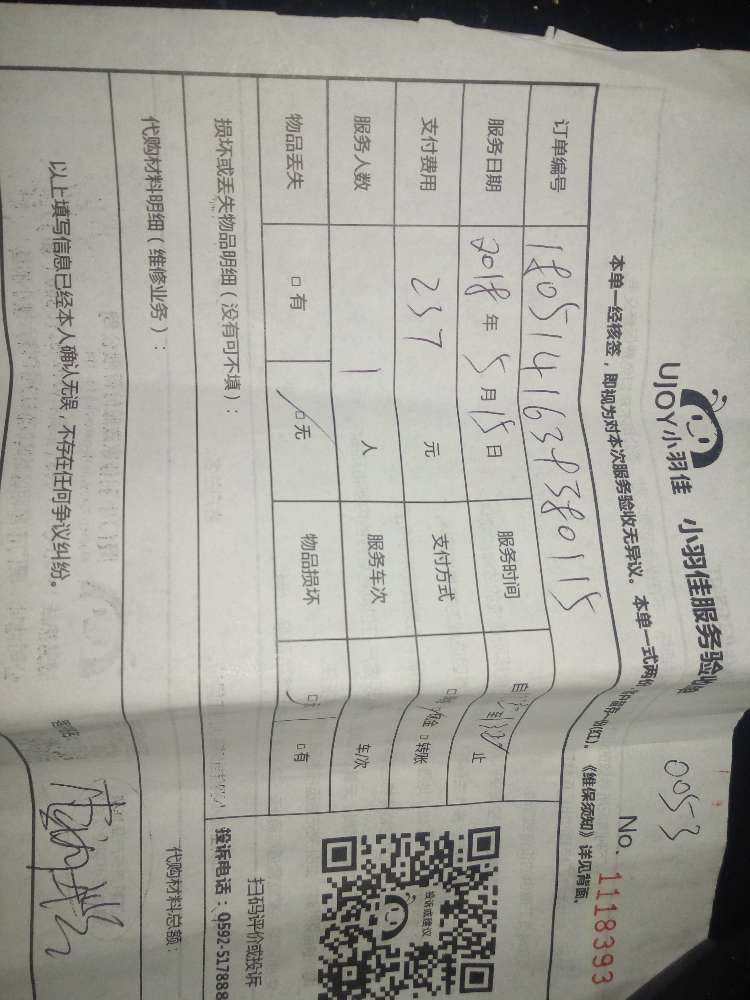 0053
UJOY小羽佳 小羽佳服务验收
No. 1118393
本单一经核签，即视为对本次服务验收无异议。本单一式两份
《维保须知》详见背面。
订单编号 1805141638380115
服务日期 2018年5月15日 服务时间 自 到 止
支付费用 237元 支付方式 现金 □转账
服务人数 1人 服务车次 车/次
物品丢失 □有 □无 物品损坏 □有
损坏或丢失物品明细（没有可不填）：
代购材料明细（维修业务）：
代购材料总额：
以上填写信息已经本人确认无误，不存在任何争议纠纷。
投诉或建议
扫码评价或投诉
投诉电话：0592-517888